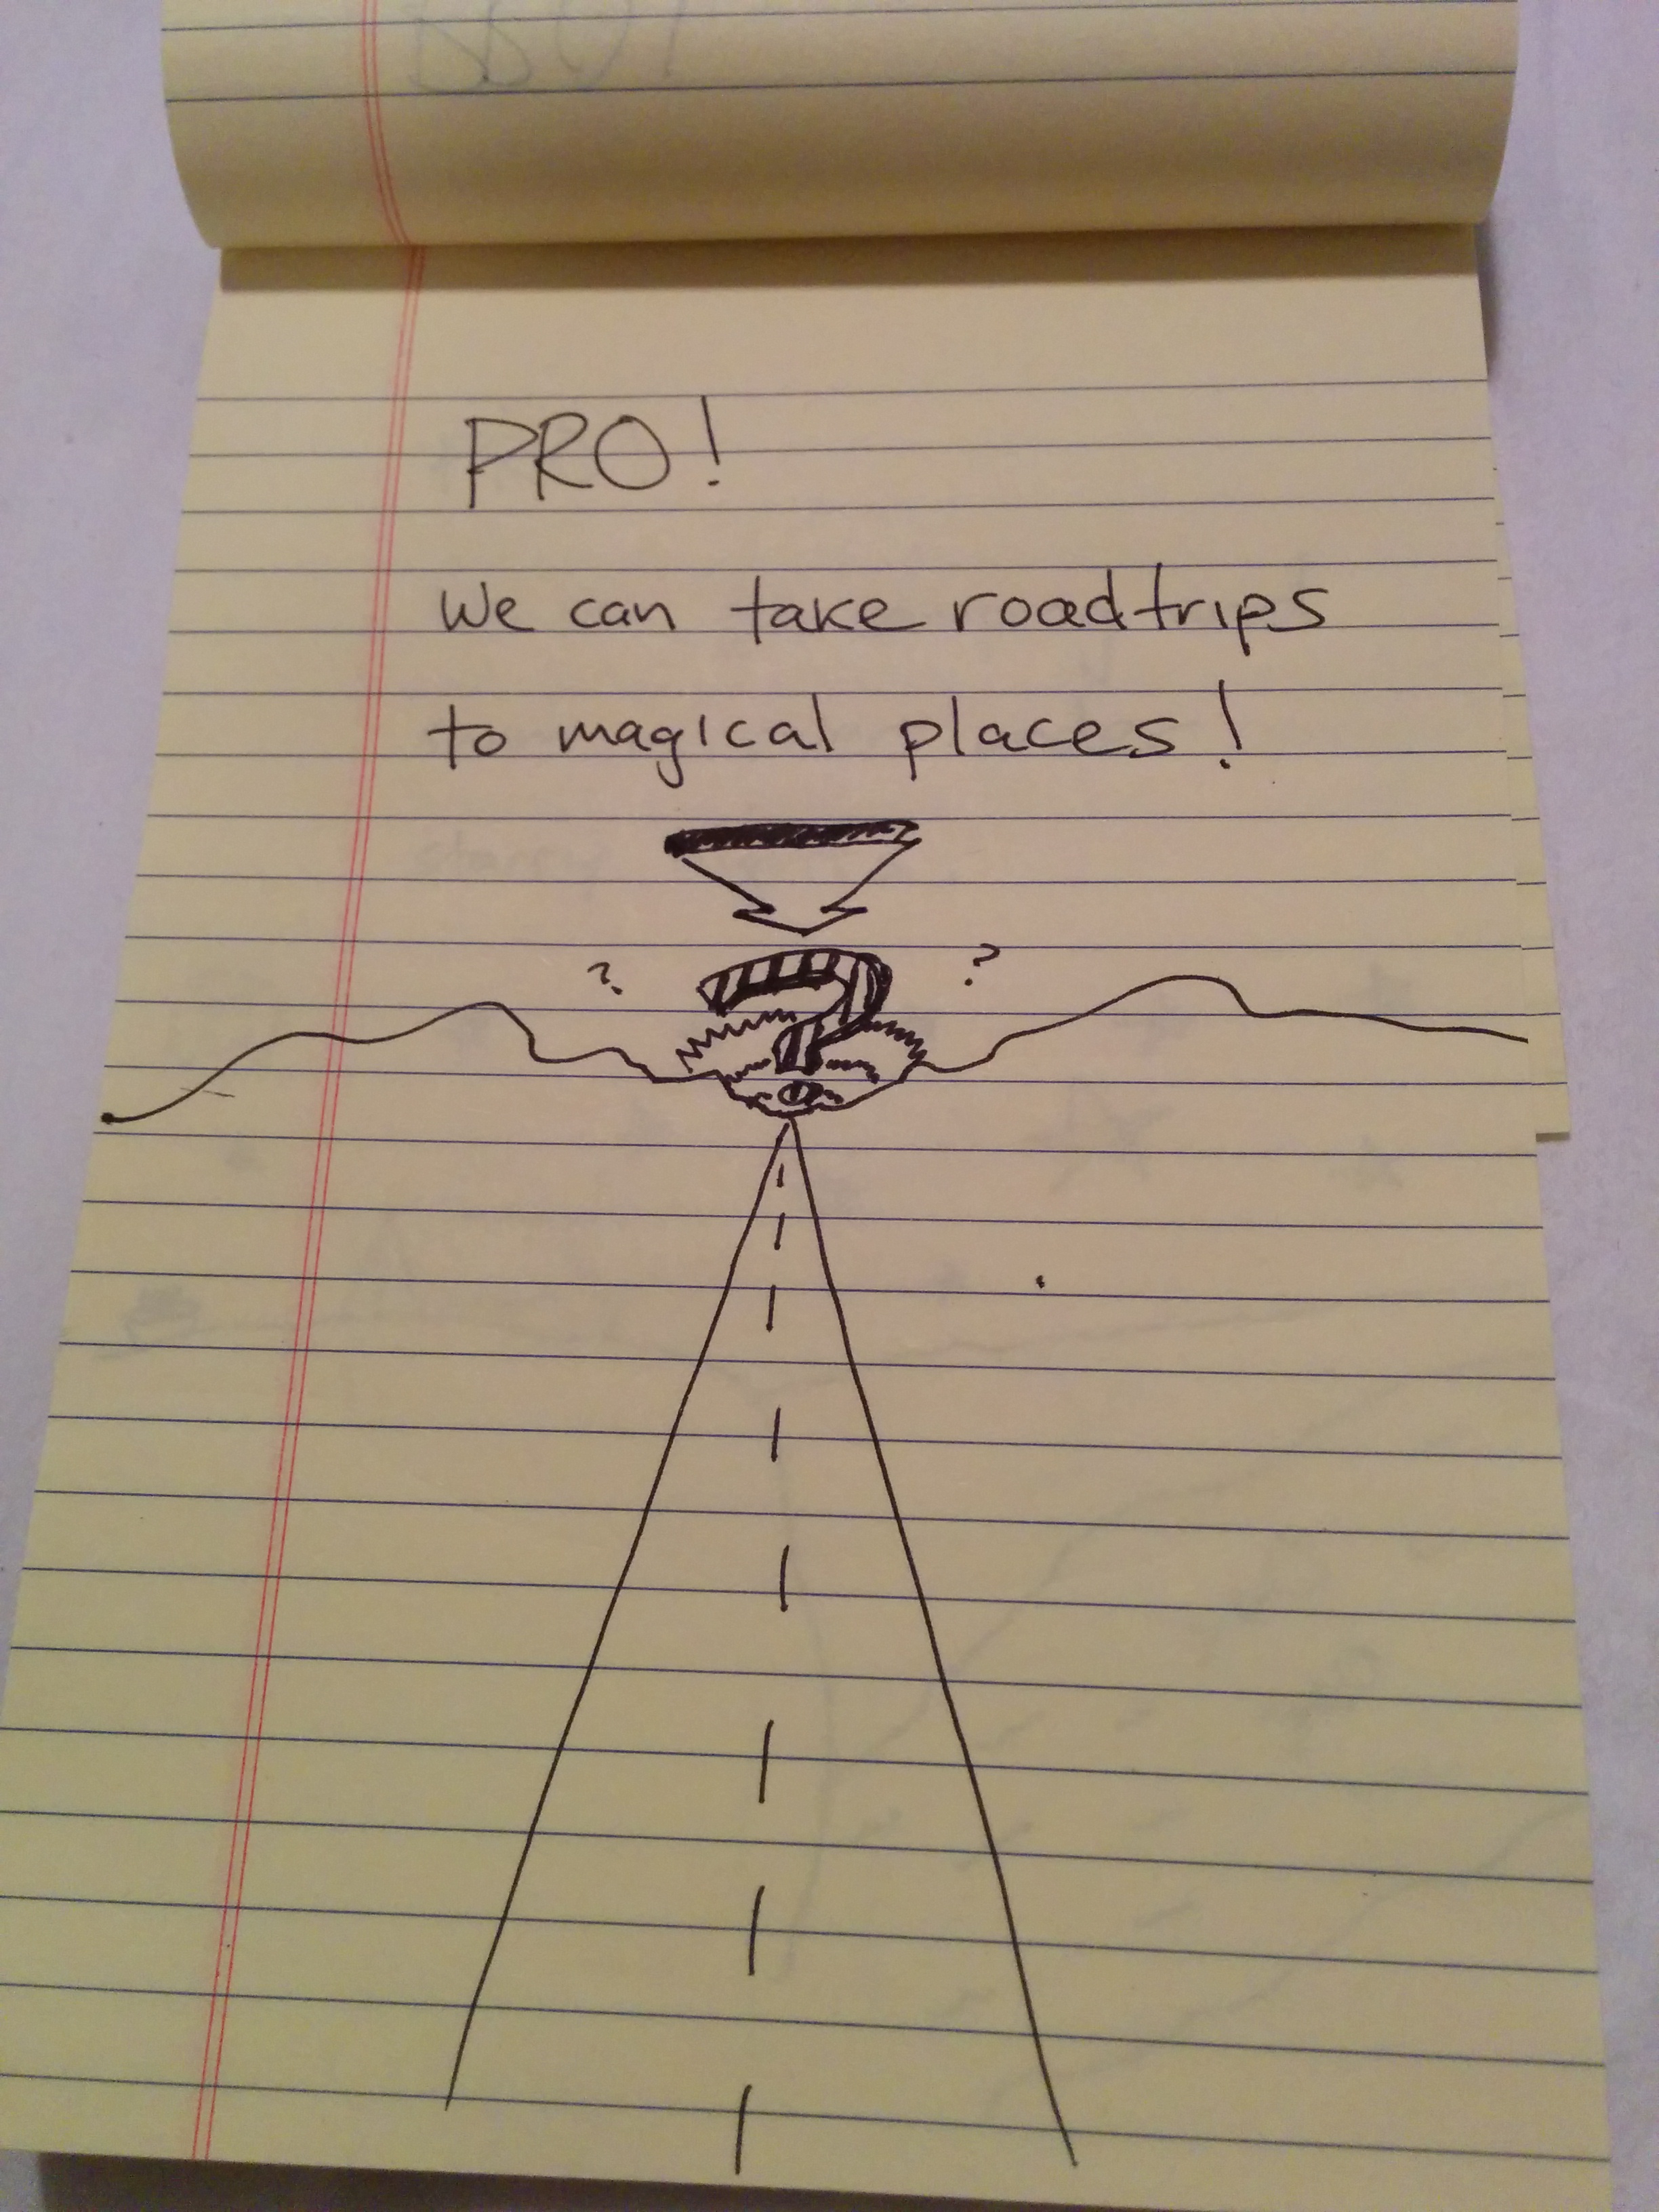 PRO!
we can take roadtrips
to magical places!
? ? ?